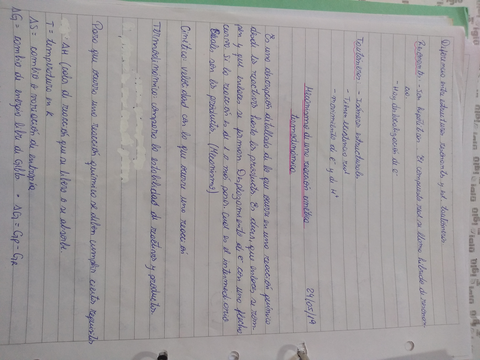 Diferencias entre estructuras resonantes y el tautómero
Resonantes: Son hipotéticas. El compuesto real se llama híbrido de resonan-
cia
- Hay deslocalización de e⁻
Tautómeros: - Isómeros estructurales
- Tienen existencia real
- movimiento de e⁻ y de H⁺
29/05/19
Mecanismo de una reacción cinética
termodinámica
Es una descripción detallada de lo que ocurre en una reacción química
desde los reactivos hasta los productos. Es decir, que enlaces se rom-
pen y que enlaces se forman. Desplazamiento de e⁻ con una flecha
curva. Si la reacción es de 1 o más pasos, cual es el intermediario
Cuales son los productos. (Mecanismo)
Cinética: velocidad con la que ocurre una reacción
Termodinámica: compara la estabilidad de reactivos y productos.
Para que ocurra una reacción química se deben cumplir ciertos requisitos
ΔH: Calor de reacción que se libera o se absorbe
T = temperatura en K
ΔS = cambio o variación de entropía
ΔG = cambio de energía libre de Gibbs • ΔG = GP - GR